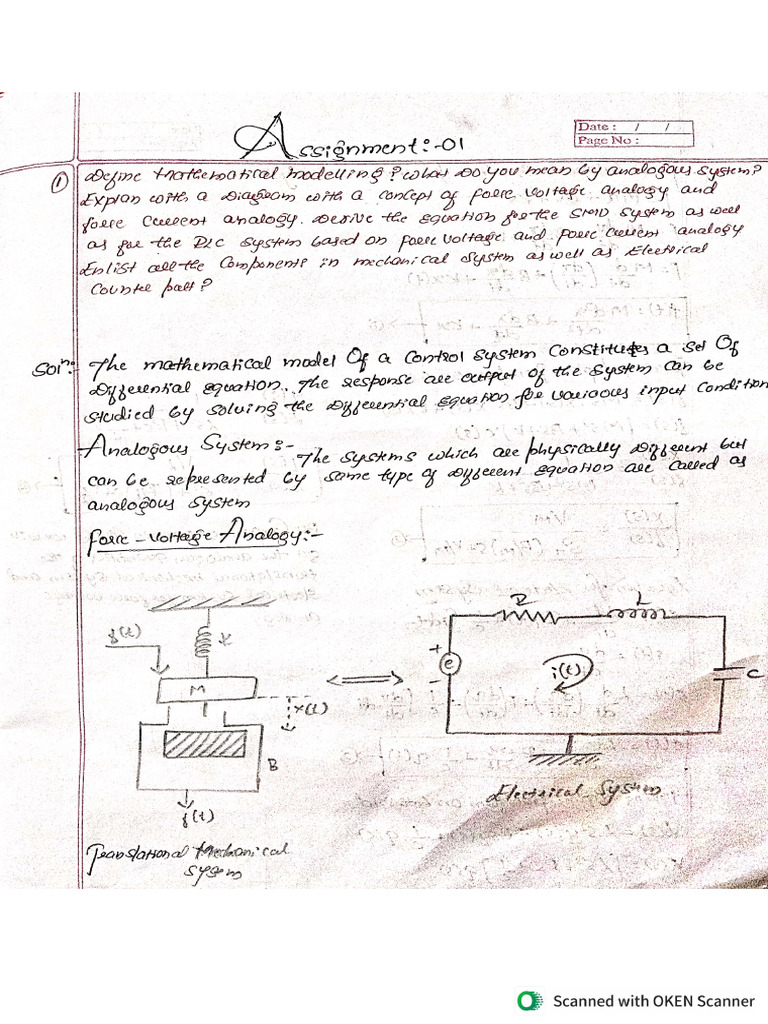 Assignment:-01
Date : / /
Page No :
① Define Mathematical modelling? What Do you mean by analogous system?
Explan with a Diagram with a concept of force voltage analogy and
force Current analogy. Derive the equation for the SMD system as well
as for the RLC system based on force voltage and force current analogy
Enlist all the Components in mechanical system as well as Electrical
Counter part?
Solⁿ:- The mathematical model Of a control system constitutes a set Of
Differential equation. The response are output of the system can be
studied by solving the differential equation for various input condition
Analogous System:- The systems which are physically Different but
can be represented by same type of different equation are called as
analogous system
force - voltage Analogy:-
f(t)
K
M
x(t)
B
f(t)
Translational Mechanical
System
R
L
+
e
-
i(t)
C
Electrical System
Scanned with OKEN Scanner